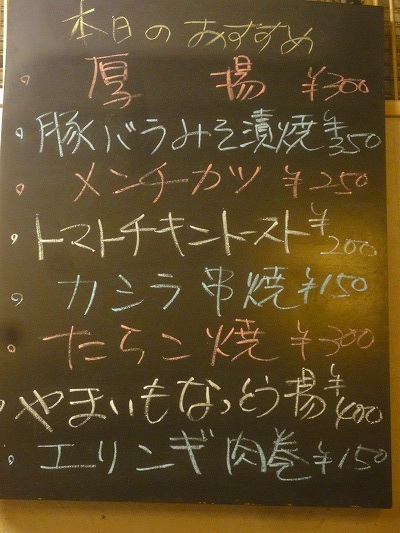 本日のおすすめ
厚揚 ¥300
豚バラみそ漬焼 ¥350
メンチカツ ¥250
トマトチキントースト ¥200
カシラ串焼 ¥150
たらこ焼 ¥300
やまいもなっとう揚 ¥400
エリンギ肉巻 ¥150